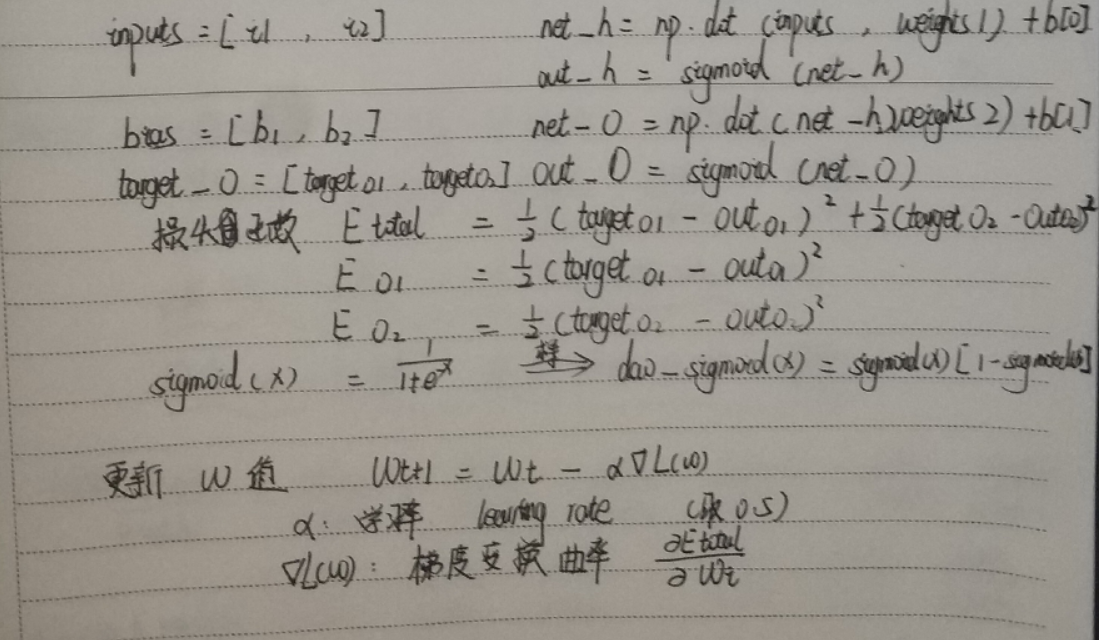 inputs = [i1 , i2] net_h = np.dot (inputs , weights1) + b[0]
out_h = sigmoid (net_h)
bias = [b1 , b2] net_o = np.dot (net_h, weights2) + b[1]
target_o = [target o1 , target o2] out_o = sigmoid (net_o)
损失函数 E total = 1/2 (target o1 - out o1)² + 1/2 (target o2 - out o2)²
E o1 = 1/2 (target o1 - out o1)²
E o2 = 1/2 (target o2 - out o2)²
sigmoid (x) = 1/(1+e^x) ⟹ dao_sigmoid(x) = sigmoid(x) [1-sigmoid(x)]
更新 W 值 Wt+1 = Wt - α∇L(w)
α: 学习率 learning rate (取 0.5)
∇L(w): 梯度变换曲率 ∂E total / ∂Wi